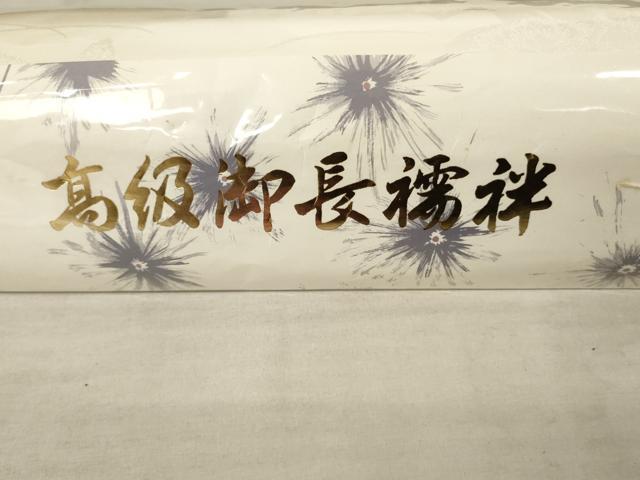 高級御長襦袢